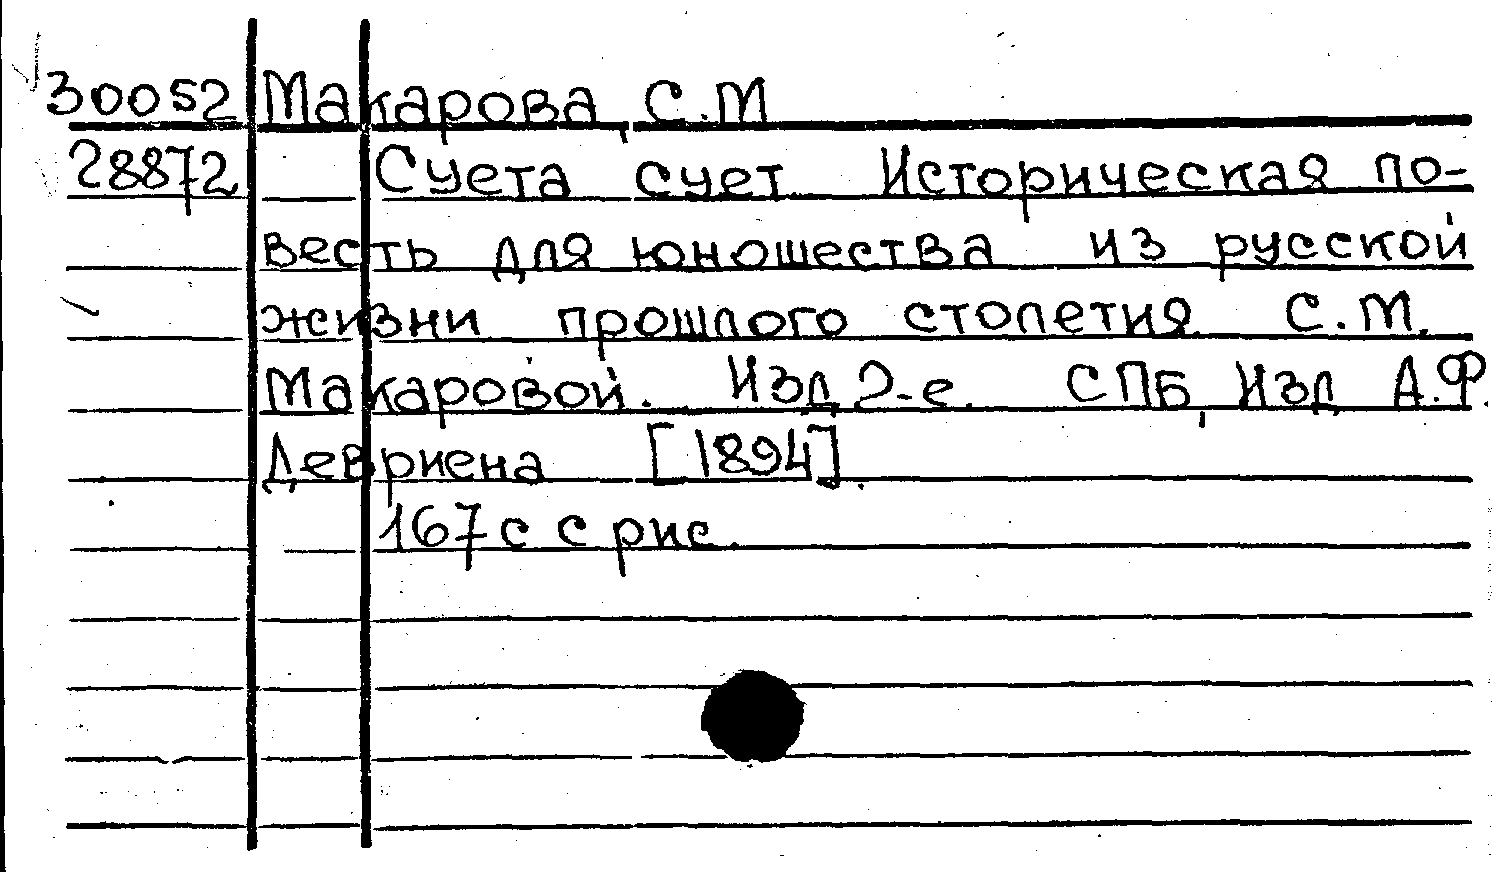 30052 Макарова, С.М
28872 Суета сует Историческая по-
весть для юношества из русской
жизни прошлого столетия С.М.
Макаровой. Изд 2-е. СПБ, Изд А.Ф.
Девриена [1894].
167 с с рис.